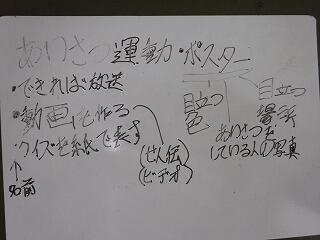 あいさつ運動・ポスター
・できれば放送
・動画を作る
(せん伝
(ビデオ)
・クイズを紙で表す
↑
名前
目立つ
色
目立つ
場所
あいさつを
している人の写真